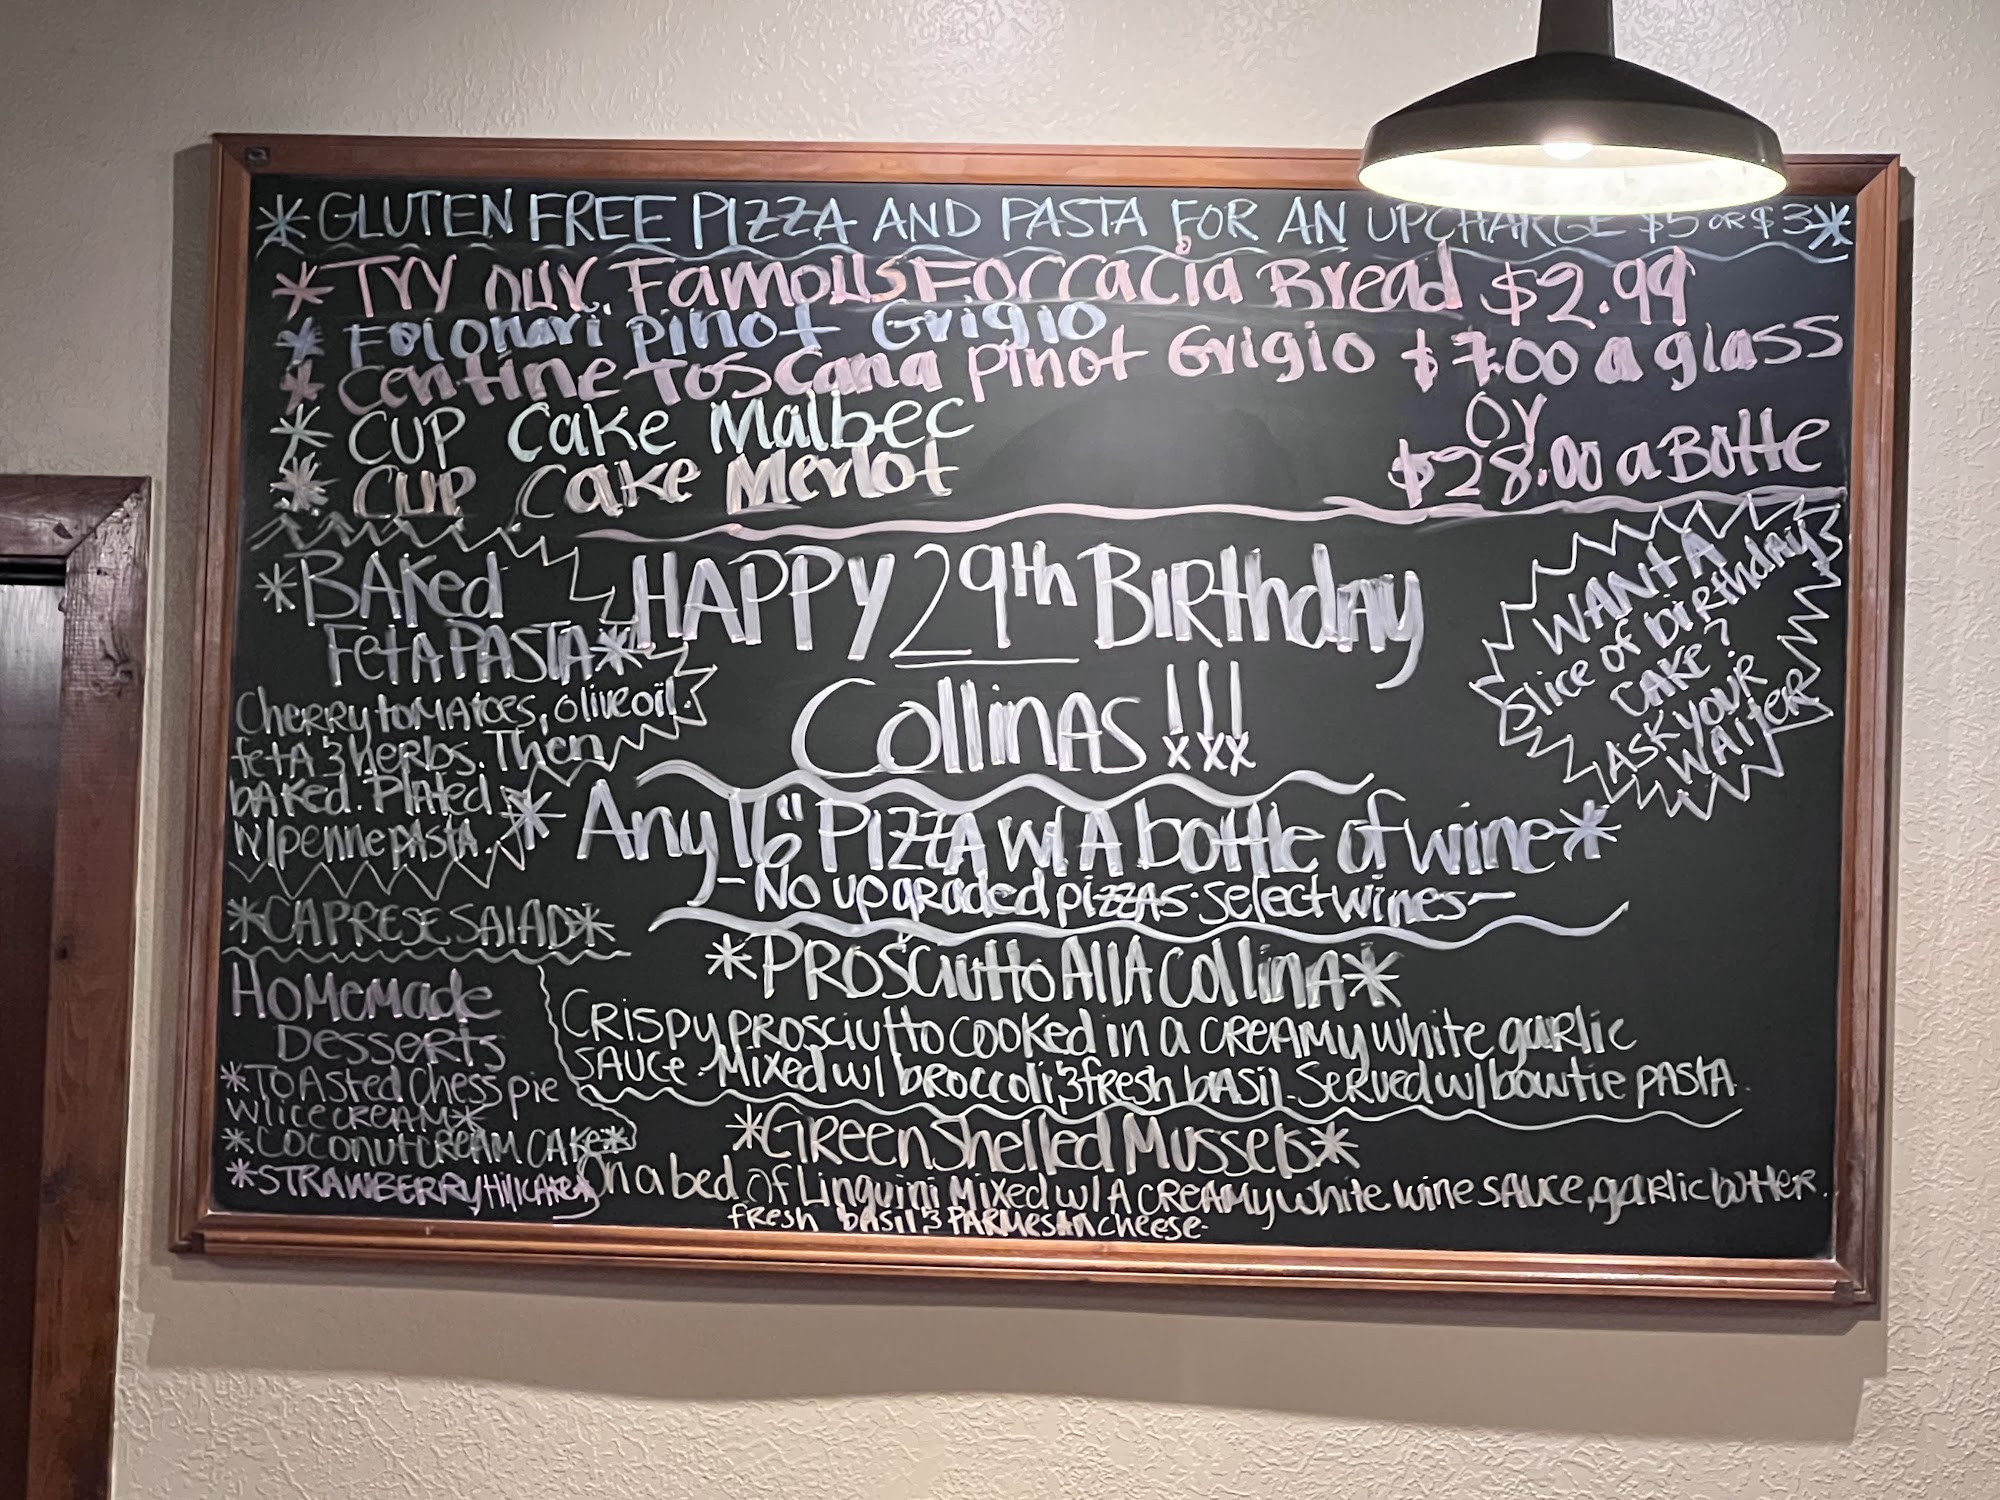 *GLUTEN FREE PIZZA AND PASTA FOR AN UPCHARGE $5 OR $3*
*Try our Famous Foccacia Bread $2.99
*Folonari pinot Grigio
*Centine Toscana pinot Grigio $7.00 a glass
or
*CUP Cake Malbec
*CUP Cake Merlot
$28.00 a Bottle
*BAKed
FetA PASTA*
CheRRy toMAToes, olive oil.
fetA & herbs. Then
bAKed. Plated
w/ penne pasta.
*CAPRESE SALAD*
HOMemade
DesserTs
*TOAsted Chess pie
w/ ice cream*
*COCONUT CREAM CAKE*
*STRAWBERRY
HAPPY 29th BIRthdAy
CollinAs!!!
xxx
WANT A
Slice of birthday
CAKE?
ASK YOUR
WAITER
*Any 16" PIZZA w/ A bottle of wine*
-No upgraded pizzas-select wines-
*PROSciutto AllA CollinA*
CRispy PROSciutto COOKed in a CREAMy white garlic
SAUCE. Mixed w/ broccoli & fresh bASil. Served w/ bowtie pASTA.
*GReen Shelled Mussels*
On a bed of Linguini Mixed w/ A CREAMy white wine sauce, garlic butter.
fresh basil & PARmesan cheese.